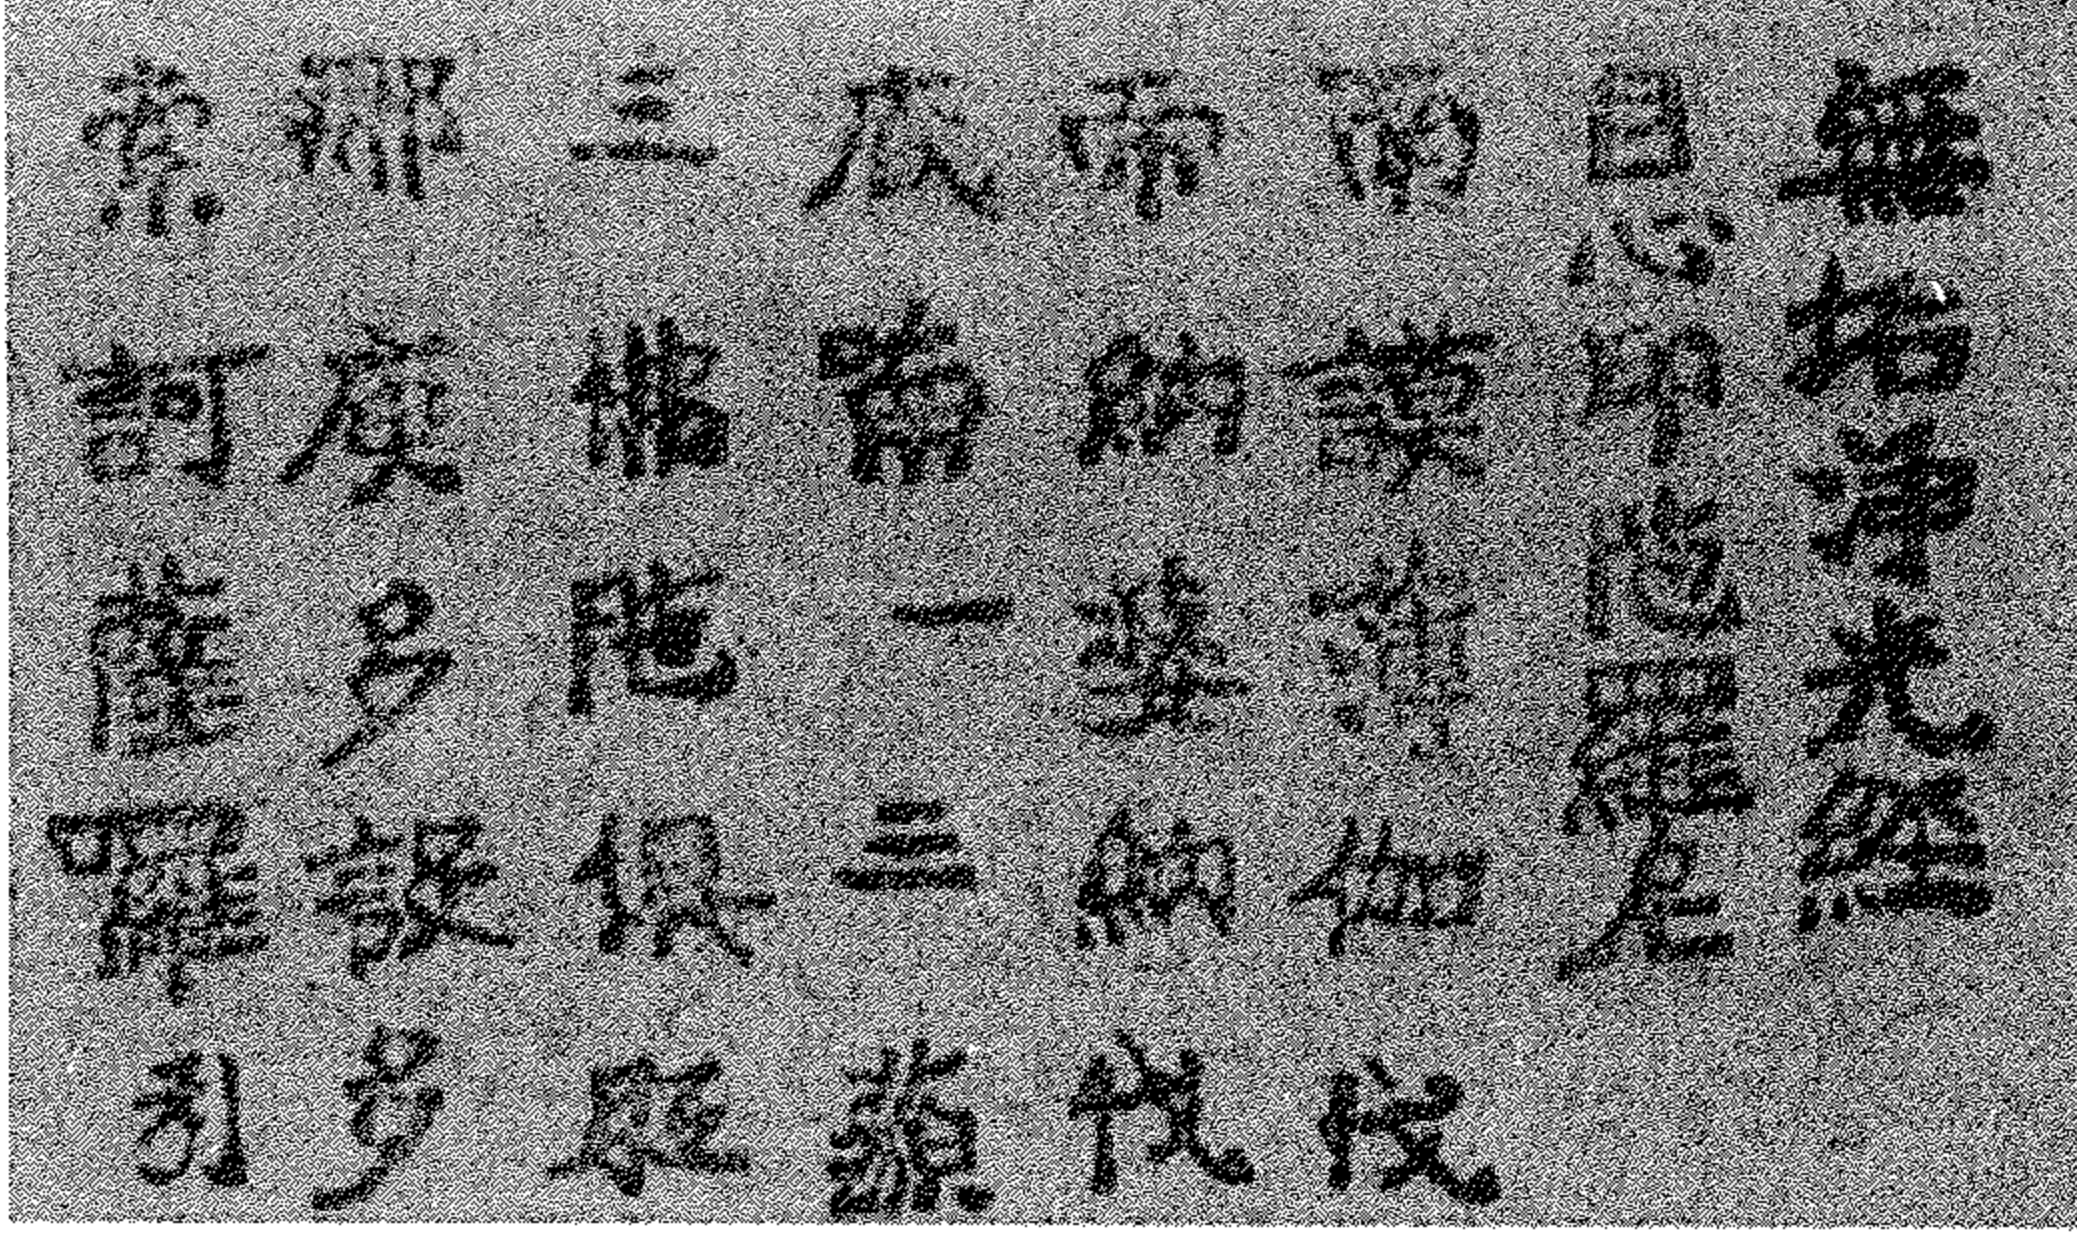 無垢淨光經
自心印陀羅尼
南謨薄伽伐
帝納婆納伐
底喃一三藐
三佛陀俱胝
那庾多設多
索訶薩囉引